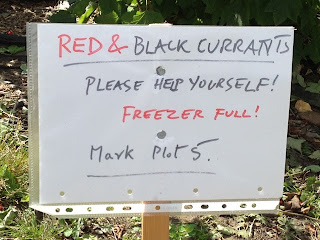 RED & BLACK CURRANTS
PLEASE HELP YOURSELF!
FREEZER FULL!
Mark Plot 5.